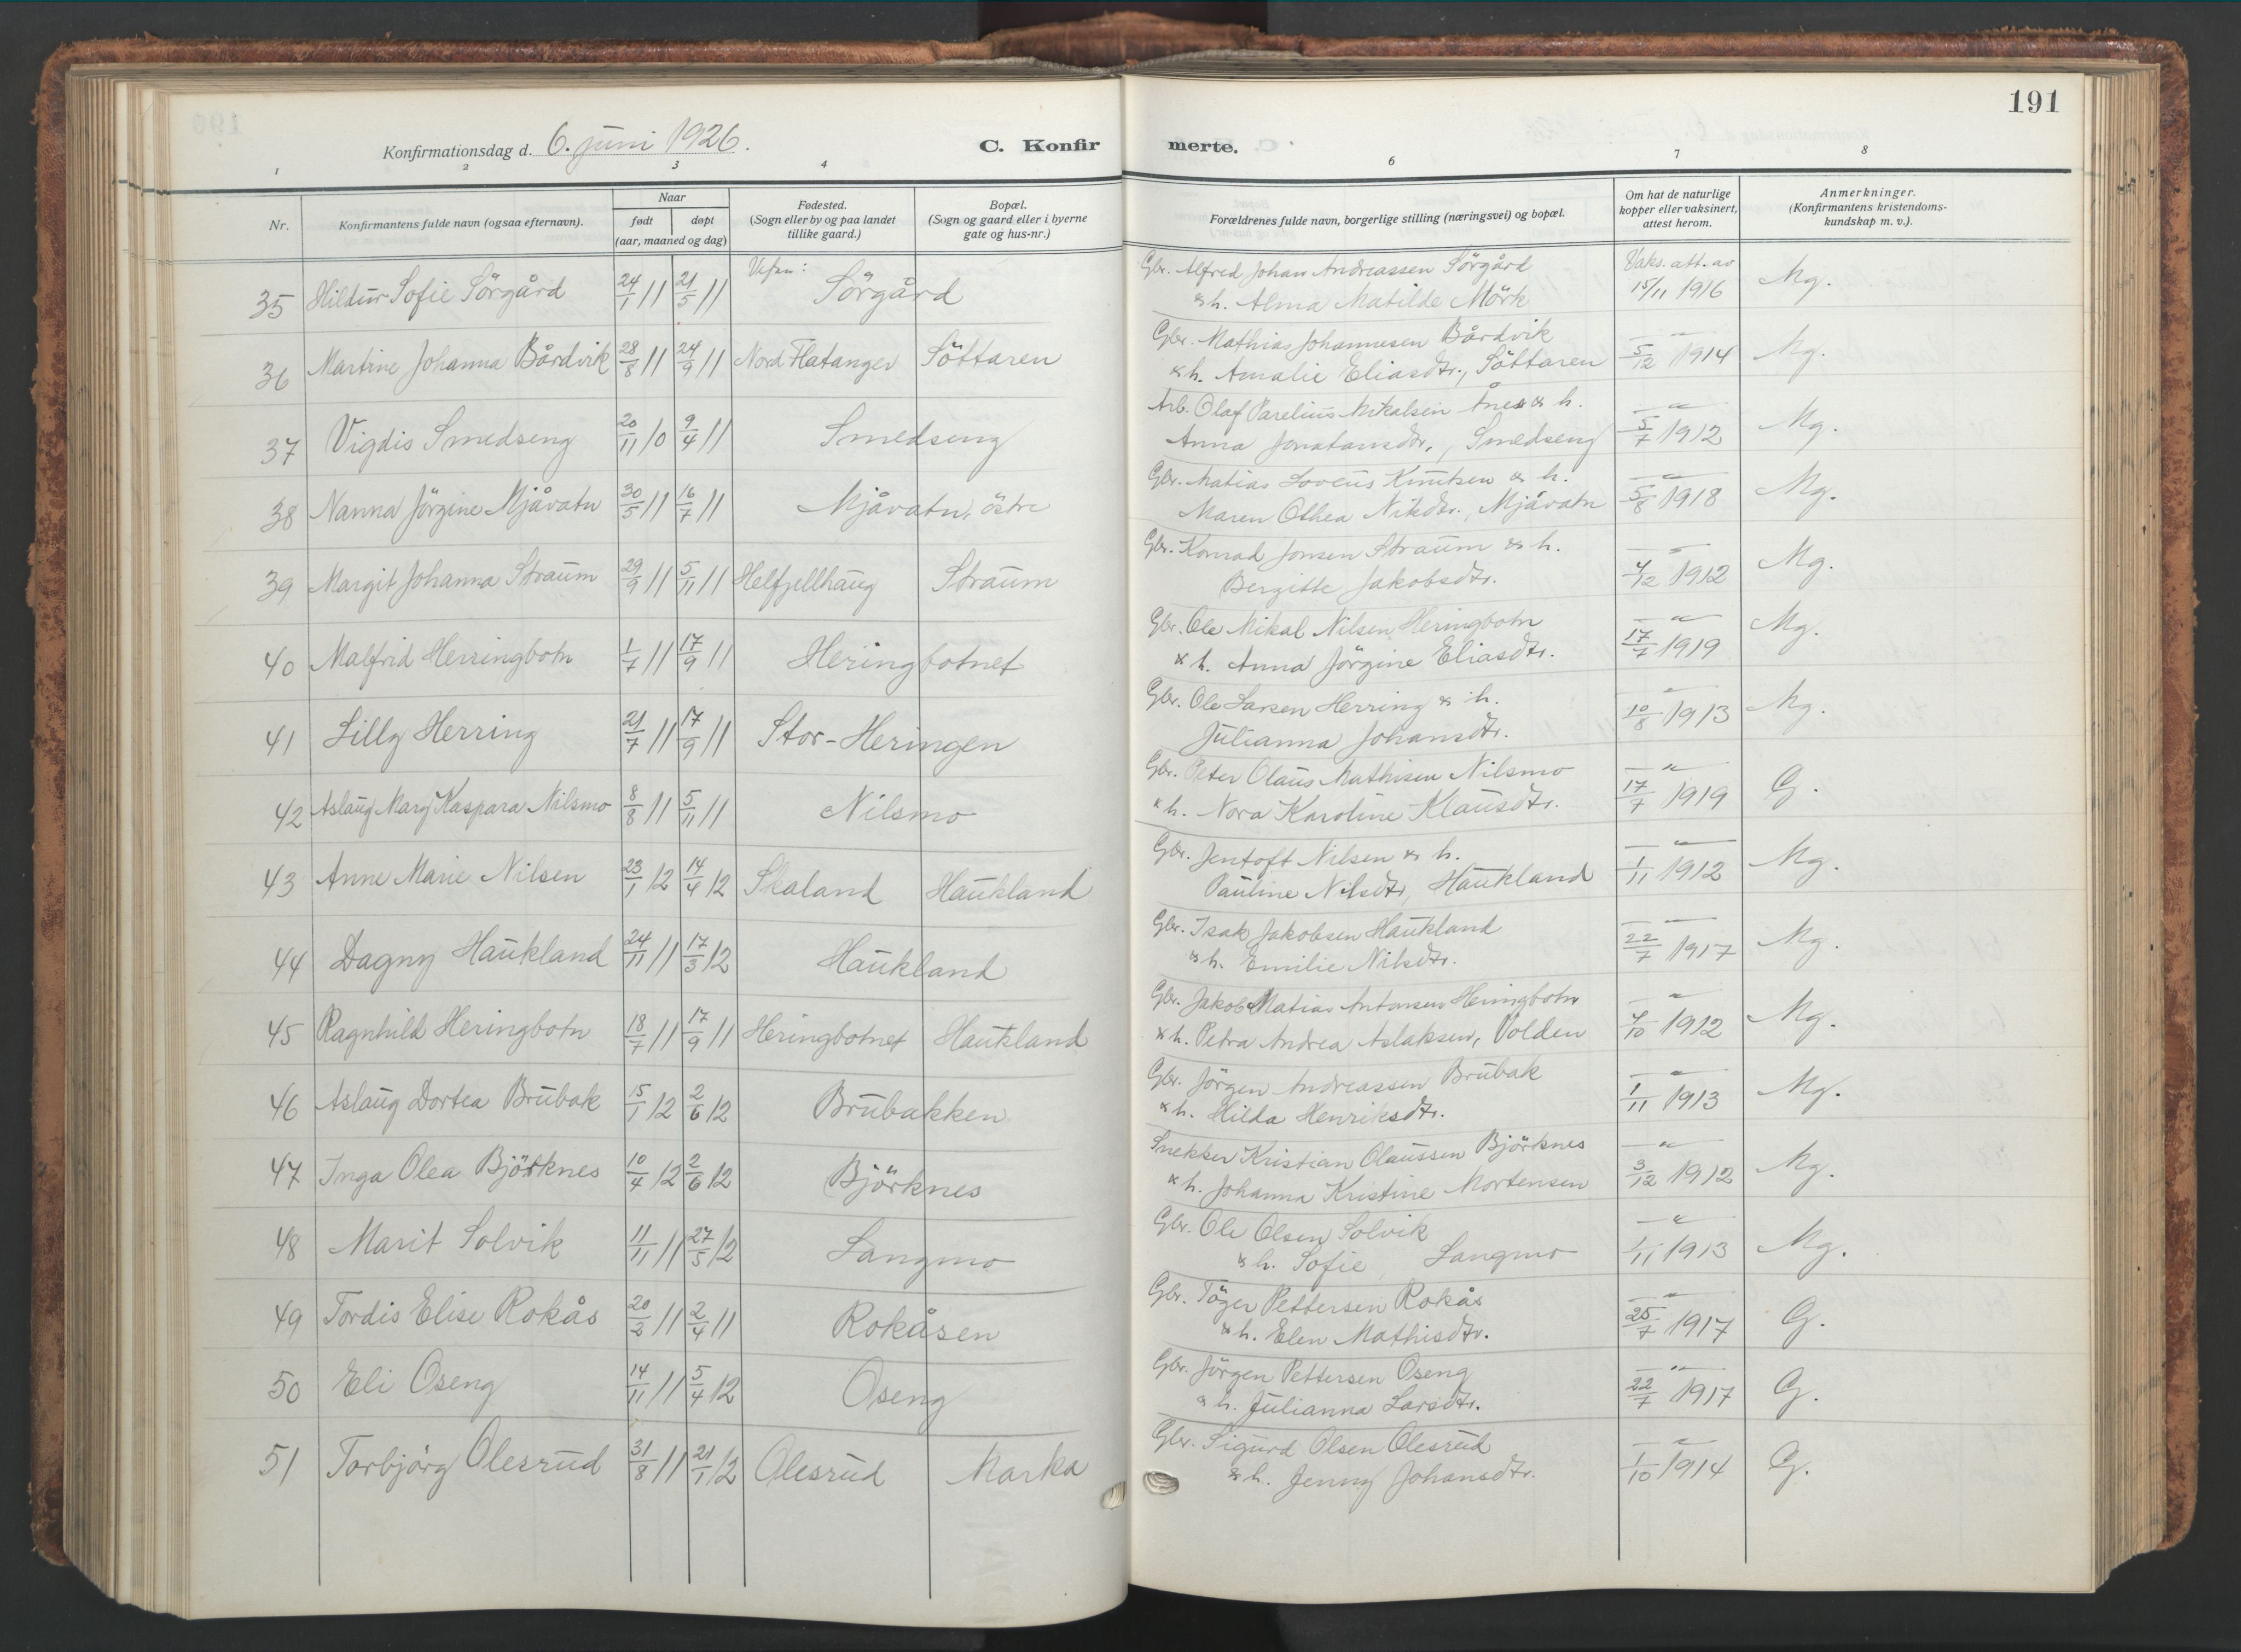 191
Konfirmationsdag d. 6. juni 1926.
C. Konfir
merte.
1 2 3 4 6 7 8
Nr.
Konfirmantens fulde navn (ogsaa efternavn).
Naar
født
døpt
(aar, maaned og dag)
Fødested.
(Sogn eller by og paa landet
tillike gaard.)
Bopæl.
(Sogn og gaard eller i byerne
gate og hus-nr.)
Forældrenes fulde navn, borgerlige stilling (næringsvei) og bopæl.
Om hat de naturlige
kopper eller vaksinert,
attest herom.
Anmerkninger.
(Konfirmantens kristendoms-
kundskap m. v.).
35 Hildur Sofie Sörgård 24/1 11 21/5 11 Sörgård
Gbr. Alfred Johan Andreassen Sörgård
& h. Alma Matilde Mörk
Vaks. att. av
15/11 1916 Mg.
36 Martine Johanna Bårdvik 28/8 11 24/9 11 Nord Flatanger Söttaren
Gbr. Mathias Johannesen Bårdvik
& h. Amalie Eliasdtr., Söttaren
-"- 5/12 1914 Mg.
37 Vigdis Smedseng 20/11 10 9/4 11 Smedseng
Arb. Olaf Parelius Mikalsen Ånes & h.
Anna Jonatansdtr., Smedseng
-"- 5/7 1912 Mg.
38 Nanna Jörgine Mjåvatn 30/5 11 16/7 11 Mjåvatn, östre
Gbr. Matias Loveus Knutsen & h.
Maren Othea Nikdtr., Mjåvatn
-"- 5/8 1918 Mg.
39 Margit Johanna Straum 29/9 11 5/11 11 Helfjellhaug Straum
Gbr. Konrad Jonsen Straum & h.
Bergitte Jakobsdtr.
-"- 4/12 1912 Mg.
40 Malfrid Herringbotn 1/7 11 17/9 11 Heringbotnet
Gbr. Ole Mikal Nilsen Heringbotn
& h. Anna Jörgine Eliasdtr.
-"- 17/7 1919 Mg.
41 Lilly Herring 21/7 11 17/9 11 Stor-Heringen
Gbr. Ole Larsen Herring & h.
Julianna Johansdtr.
-"- 10/8 1913 Mg.
42 Aslaug Mary Kaspara Nilsmo 8/8 11 5/11 11 Nilsmo
Gbr. Peter Olaus Mathisen Nilsmo
& h. Nora Karoline Klausdtr.
-"- 17/7 1919 G.
43 Anne Marie Nilsen 23/1 12 14/4 12 Skaland Haukland
Gbr. Jentoft Nilsen & h.
Pauline Nilsdtr, Haukland
-"- 1/11 1912 Mg.
44 Dagny Haukland 24/11 11 17/3 12 Haukland
Gbr. Isak Jakobsen Haukland
& h. Emilie Nilsdtr.
-"- 22/7 1917 Mg.
45 Ragnhild Heringbotn 18/7 11 17/9 11 Heringbotnet Haukland
Gbr. Jakob Matias Antonsen Heringbotn
& h. Petra Andrea Aslaksen, Volden
-"- 4/10 1912 Mg.
46 Aslaug Dortea Brubak 15/1 12 2/6 12 Brubakken
Gbr. Jörgen Andreassen Brubak
& h. Hilda Henriksdtr.
-"- 1/11 1913 Mg.
47 Inga Olea Björknes 10/4 12 2/6 12 Björknes
Snekker Kristian Olaussen Björknes
& h. Johanna Kristine Mortensen
-"- 3/12 1912 Mg.
48 Marit Solvik 11/11 11 27/5 12 Langmo
Gbr. Ole Olsen Solvik
& h. Sofie, Langmo
-"- 1/11 1913 Mg.
49 Tordis Elise Rokås 20/2 11 2/4 11 Rokåsen
Gbr. Töger Pettersen Rokås
& h. Elen Mathisdtr.
-"- 25/7 1917 G.
50 Eli Oseng 14/11 11 5/4 12 Oseng
Gbr. Jörgen Pettersen Oseng
& h. Julianna Larsdtr.
-"- 22/7 1917 G.
51 Torbjörg Olesrud 31/8 11 21/1 12 Olesrud Marka
Gbr. Sigurd Olsen Olesrud
& h. Jenny Johansdtr.
-"- 1/10 1914 G.